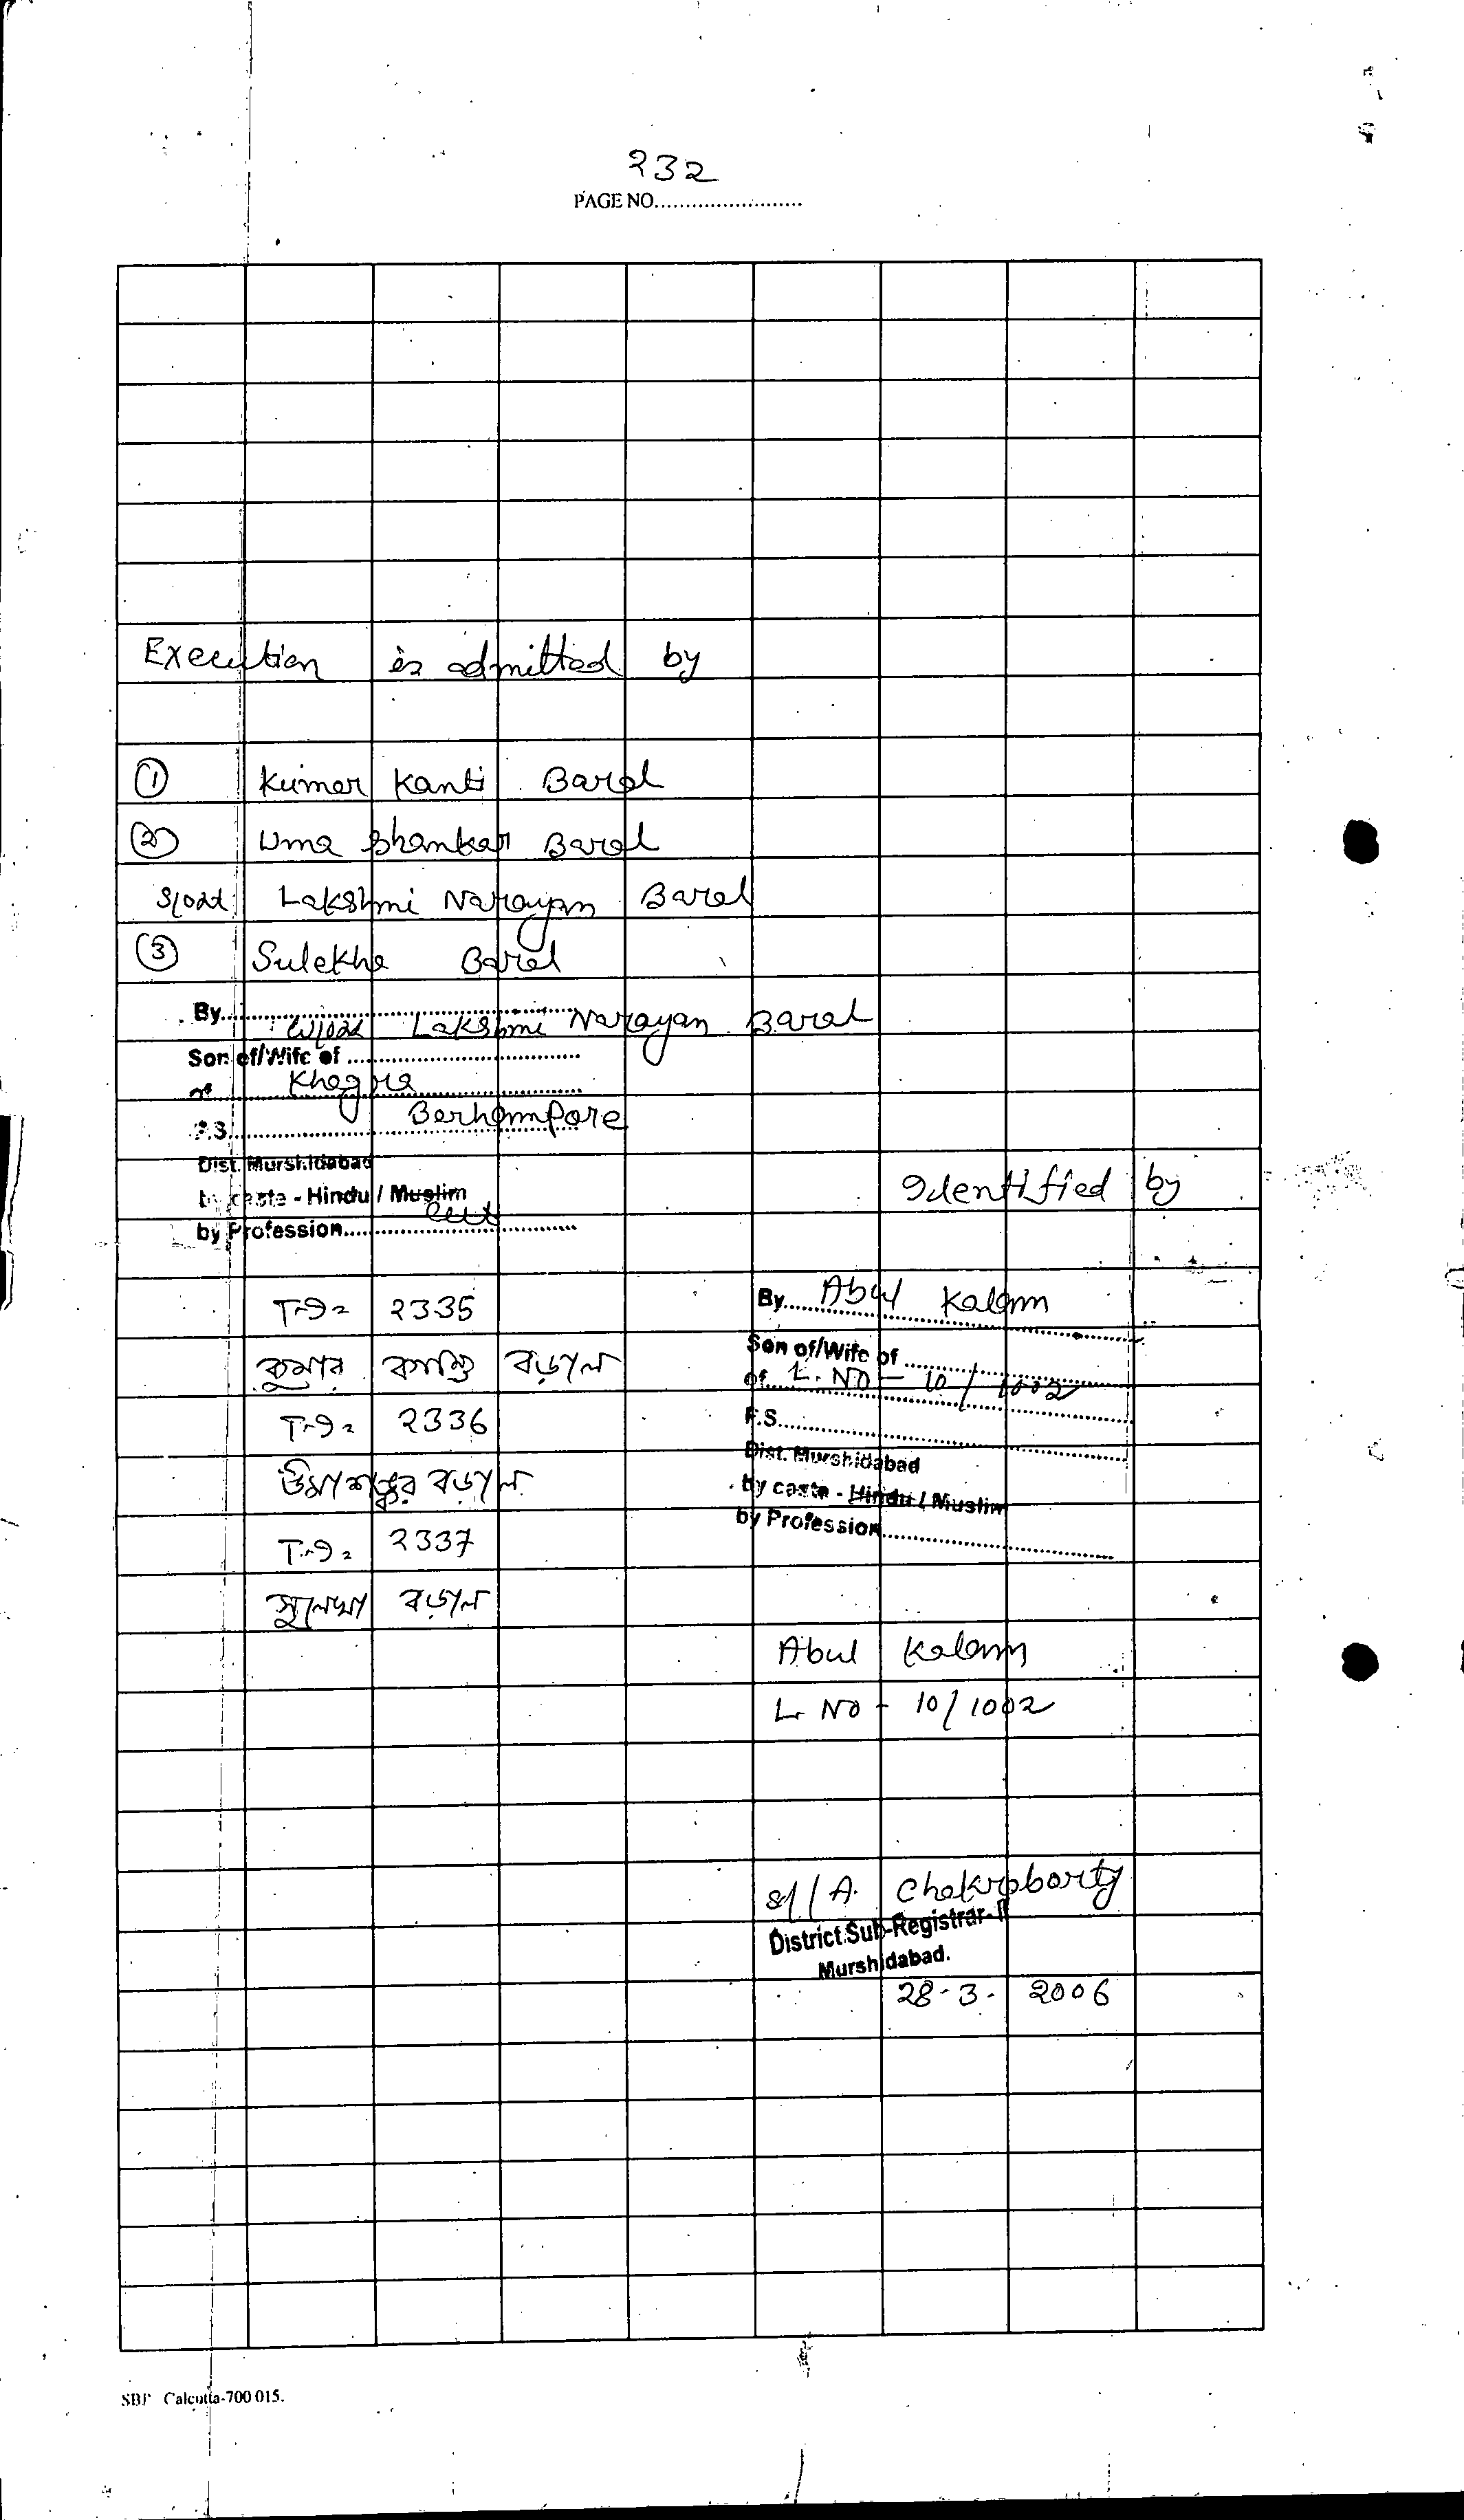 232
PAGE NO.........................
Execution is admitted by
① Kumar Kanti Baral
② Uma Shankar Baral
Lakshmi Narayan Baral
③ Sulekha Baral
By..........................
Lakshmi Narayan Baral
Son of/Wife of ..........................
of Khagra
P.S. Berhampore
Dist. Murshidabad
by caste - Hindu / Muslim
by Profession..........................
Identified by
2335
কুমার কান্তি বড়াল
2336
উমাশঙ্কর বড়াল
2337
সুলেখা বড়াল
By Abul Kalam
Son of/Wife of ..........................
of L. No - 10/1002
P.S..........................
Dist. Murshidabad
by caste - Hindu / Muslim
by Profession..........................
Abul Kalam
L. No - 10/1002
A. Chakraborty
District Sub-Registrar-II
Murshidabad.
28-3-2006
Calcutta-700 015.